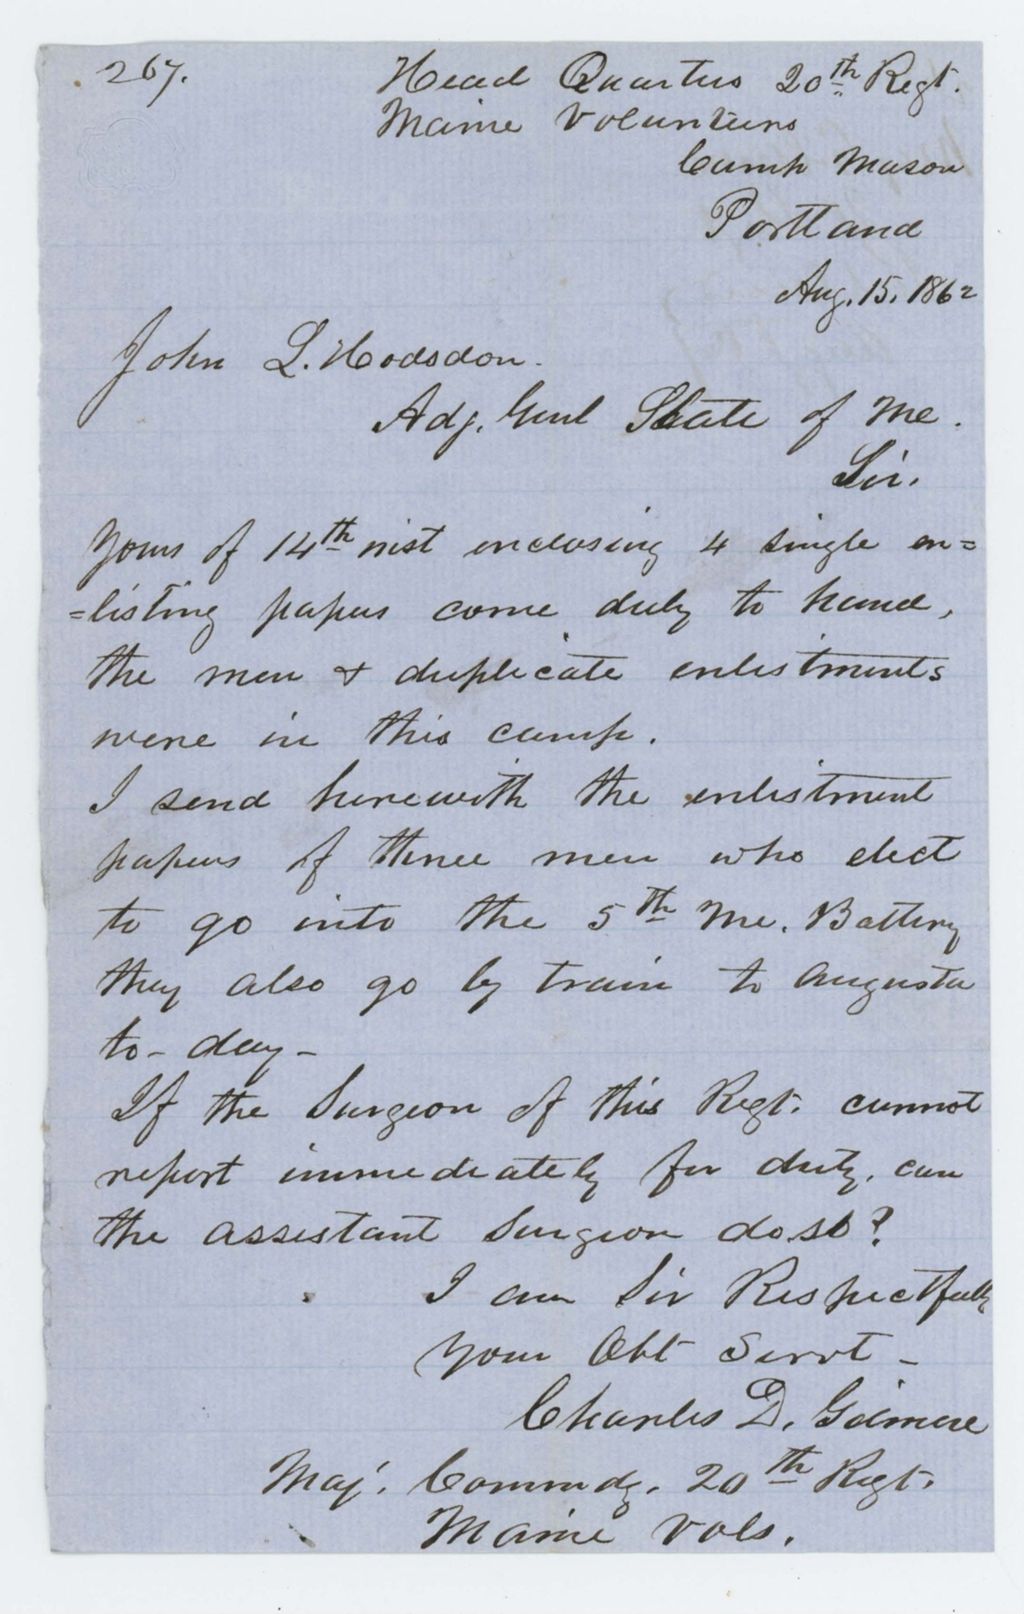 267.
Head Quarters 20th Regt.
Maine Volunteers
Camp Mason
Portland
Aug. 15, 1862
John L. Hodsdon.
Adj. Genl State of Me.
Sir.
Yours of 14th inst enclosing 4 single en=
=listing papers come duly to hand,
the men & duplicate enlistments
were in this camp.
I send herewith the enlistment
papers of three men who elect
to go into the 5th Me. Battery
they also go by train to Augusta
to-day-
If the Surgeon of this Regt. cannot
report immediately for duty, can
the assistant Surgeon do so?
I am Sir Respectfully
Your Obt Servt -
Charles D. Gilmore
Maj. Commdg. 20th Regt.
Maine Vols.